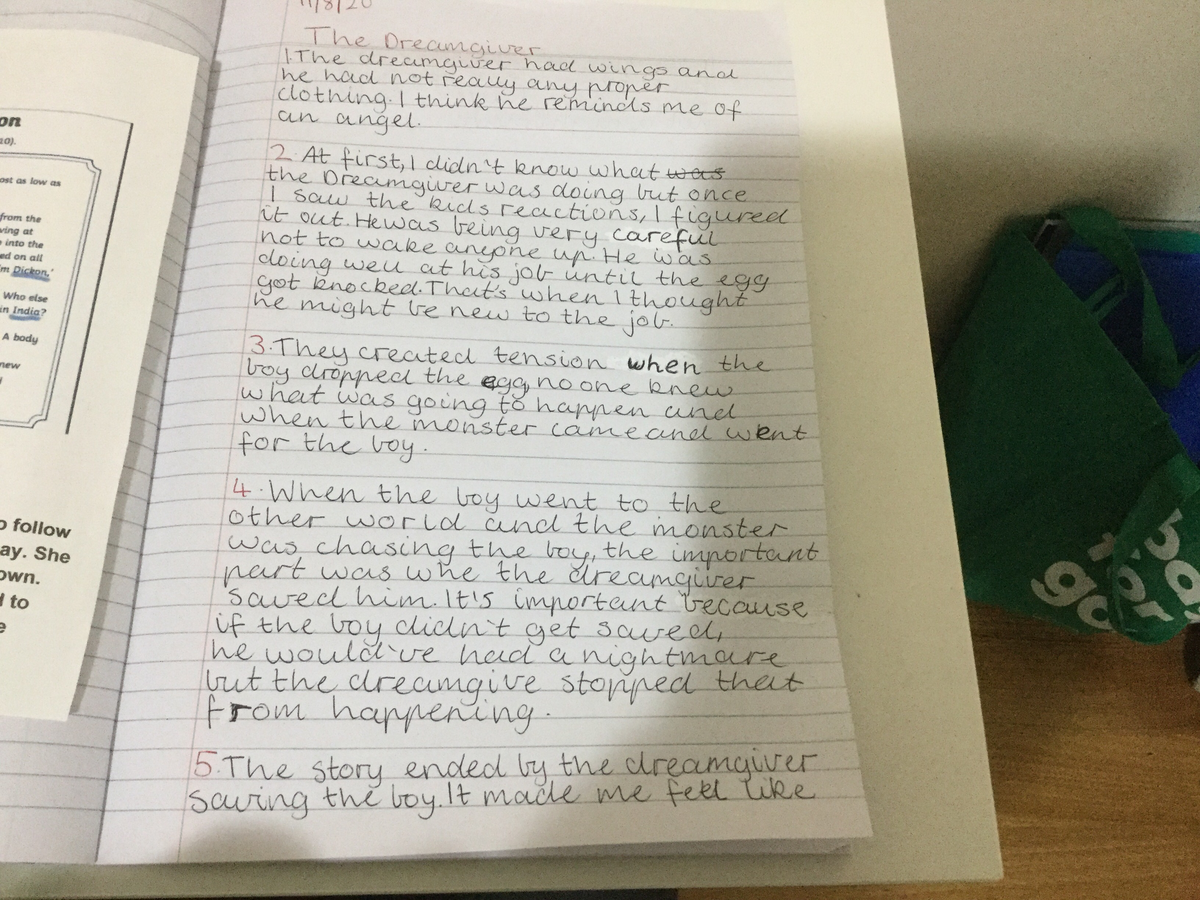 on
20).
ost as low as
from the
ving at
into the
ed on all
'm Dickon.'
Who else
in India?
A body
new
o follow
ay. She
own.
d to
e
11/8/20
The Dreamgiver
1.The dreamgiver had wings and
he had not really any proper
clothing. I think he reminds me of
an angel.
2. At first, I didn't know what was
the Dreamgiver was doing but once
I saw the kids reactions, I figured
it out. He was being very careful
not to wake anyone up. He was
doing well at his job until the egg
got knocked. That's when I thought
he might be new to the job.
3. They created tension when the
boy dropped the egg, no one knew
what was going to happen and
when the monster came and went
for the boy.
4. When the boy went to the
other world and the monster
was chasing the boy, the important
part was whe the dreamgiver
saved him. It's important because
if the boy didn't get saved,
he would've had a nightmare
but the dreamgive stopped that
from happening.
5. The story ended by the dreamgiver
saving the boy. It made me feel like